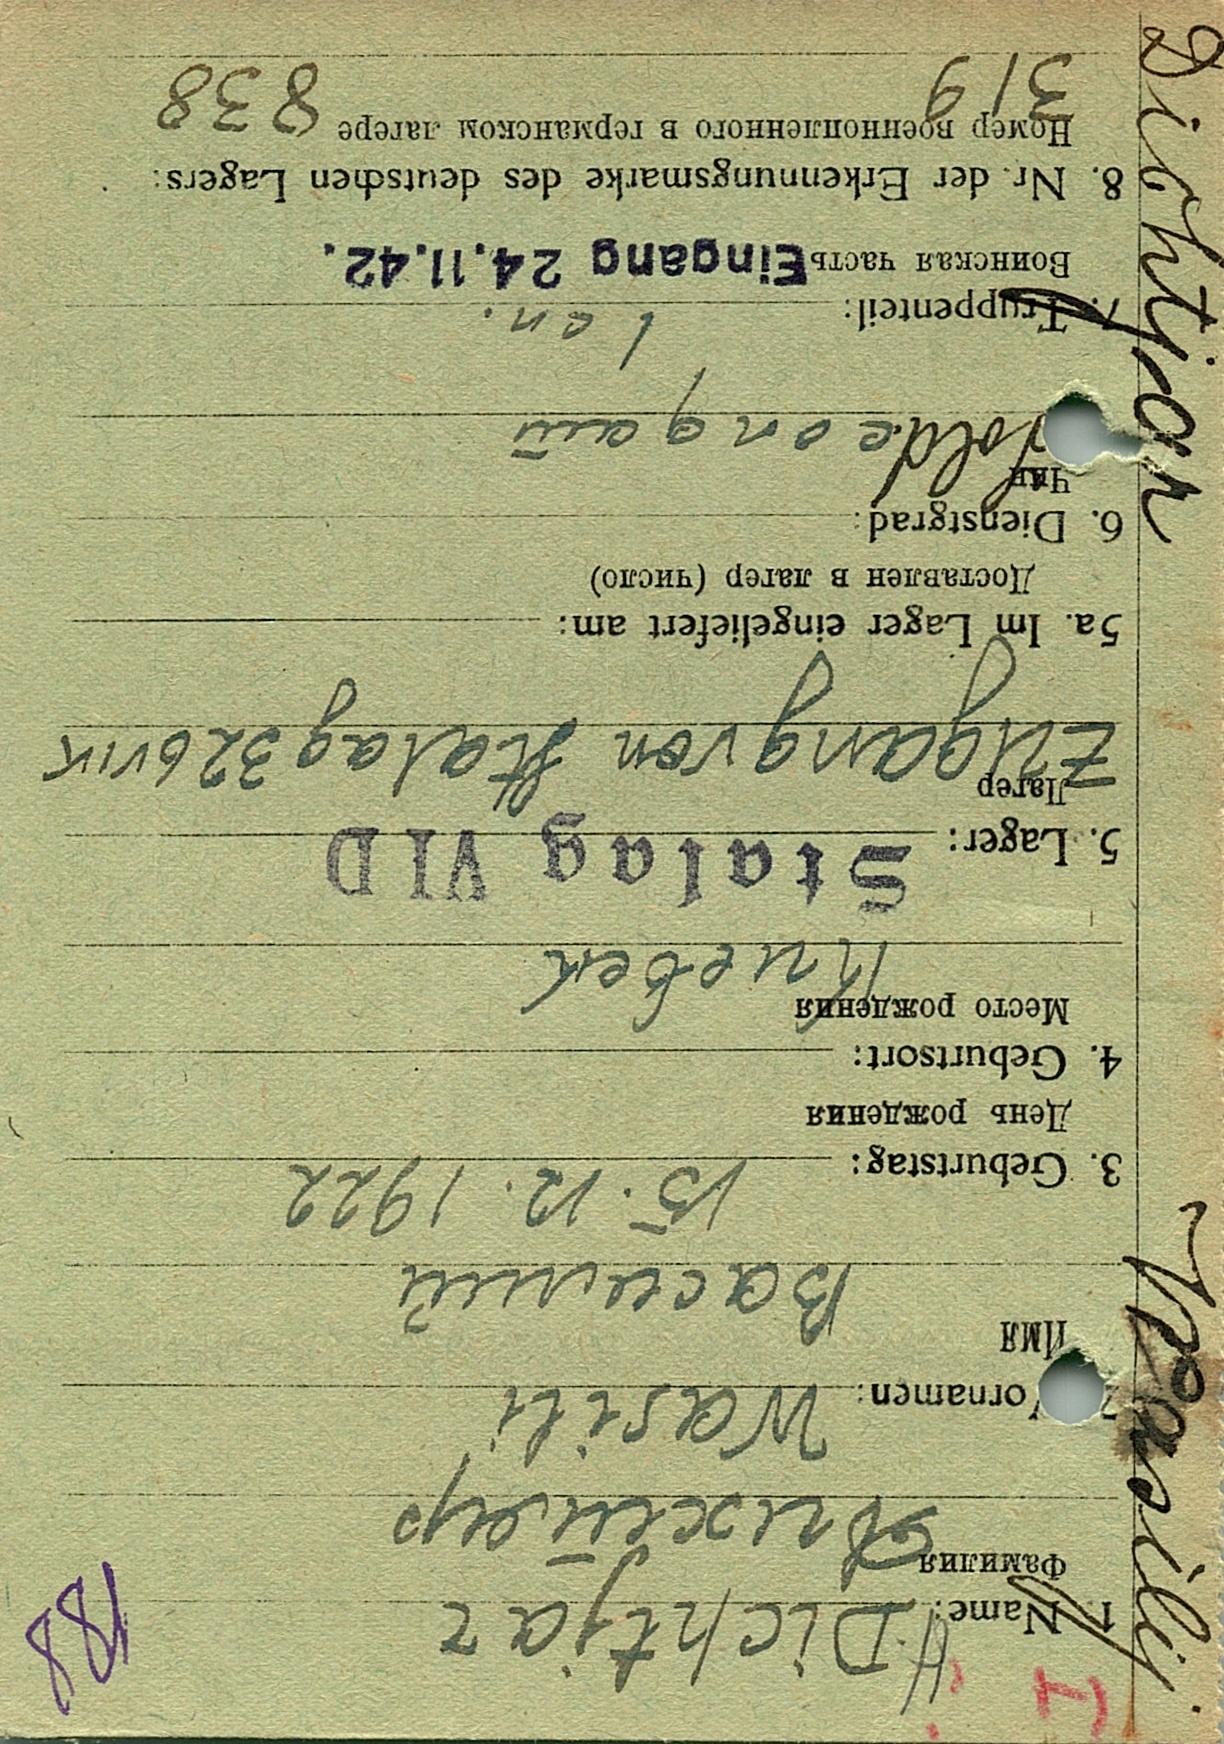 188
1. Name: Dichtjar
Фамилия
2. Vornamen: Wasili
Имя Василий
3. Geburtstag: 15.12.1922
День рождения
4. Geburtsort:
Место рождения Киевск
5. Lager: Stalag VI D
Лагер
Zugang von Stalag 326 VI K
5a. Im Lager eingeliefert am:
Доставлен в лагер (число)
6. Dienstgrad:
Чин
Sold.
7. Truppenteil:
Воинская часть Eingang 24.11.42.
8. Nr. der Erkennungsmarke des deutschen Lagers:
Номер военнопленного в германском лагере
319 838
Wasilij
Dichtjar